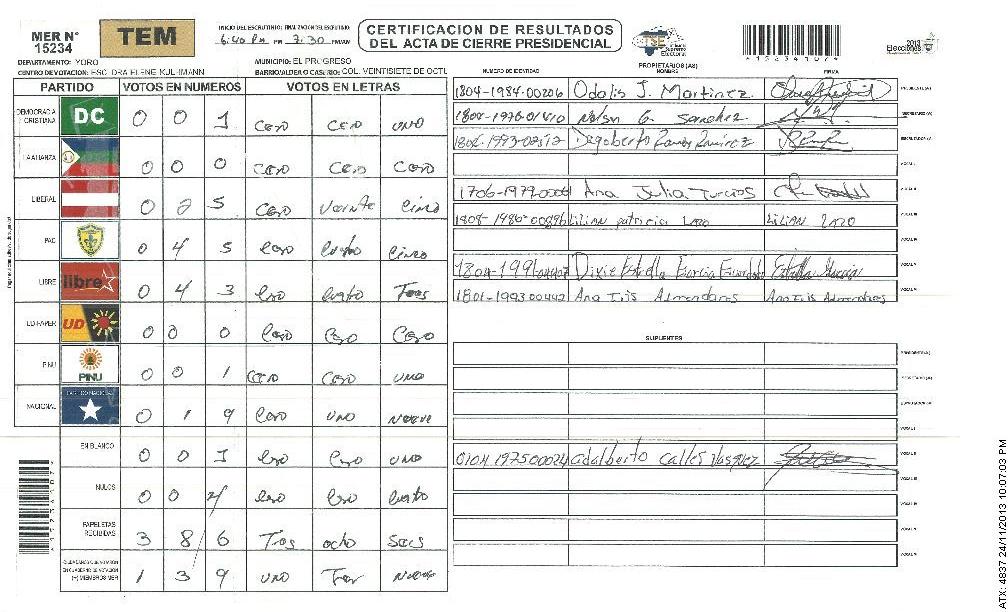 MER N° 15234
TEM
INICIO DEL ESCRUTINIO: FINALIZACION DEL ESCRUTINIO
6:40 Pm PM 7:30 PM/AM
CERTIFICACION DE RESULTADOS
DEL ACTA DE CIERRE PRESIDENCIAL
TSE Tribunal Supremo Electoral
*1523410?*
2013 Elecciones
DEPARTAMENTO: YORO
MUNICIPIO: EL PROGRESO
CENTRO DE VOTACION: ESC. DRA ELENE KULHMANN
BARRIO/ALDEA O CASERIO: COL. VEINTISIETE DE OCTU
PARTIDO VOTOS EN NUMEROS VOTOS EN LETRAS
DEMOCRACIA CRISTIANA DC 0 0 1 Cero Cero UNO
LA ALIANZA 0 0 0 Cero Cero Cero
LIBERAL 0 2 5 Cero Veinte Cinco
PAC 0 4 5 Cero Cuatro Cinco
LIBRE libre 0 4 3 Cero Cuatro Tres
UD FAPER UD 0 0 0 Cero Cero Cero
PINU PINU 0 0 1 Cero Cero UNO
NACIONAL PARTIDO NACIONAL 0 1 9 Cero UNO Nueve
EN BLANCO 0 0 1 Cero Cero UNO
NULOS 0 0 4 Cero Cero Cuatro
PAPELETAS RECIBIDAS 3 8 6 Tres ocho Seis
(+) MIEMBROS MER 1 3 9 UNO Tres Nueve
NUMERO DE IDENTIDAD PROPIETARIOS (AS) NOMBRES FIRMA
1804-1984-00206 Odalis J. Martinez PRESIDENTE (A)
Nelson G. Sanchez SECRETARIO (A)
Dagoberto Ramos Ramirez
VOCAL I
Ana Julia Turcios VOCAL II
Lilian patricia Lazo LILIAN LAZO VOCAL III
VOCAL IV
Dixie Estrella Garcia Estrella Garcia VOCAL V
1801-1993-00442 Ana Iris Almendares Ana Iris Almendares
SUPLENTES
PRESIDENTE (A)
SECRETARIO (A)
ESCRUTADOR (A)
VOCAL I
0104 197500024 adalberto Calles Vasquez VOCAL II
VOCAL III
VOCAL IV
VOCAL V
ATX: 4837 24/11/2013 10:07:03 PM